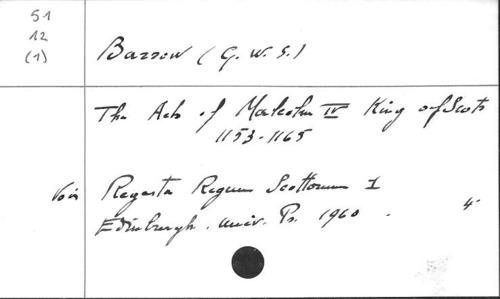 51
12
(1)
Barrow (G. W. S.)
The Acts of Malcolm IV King of Scots
1153-1165
Voir Regesta Regum Scottorum I
Edinburgh. Univ. Ps. 1960. 4°